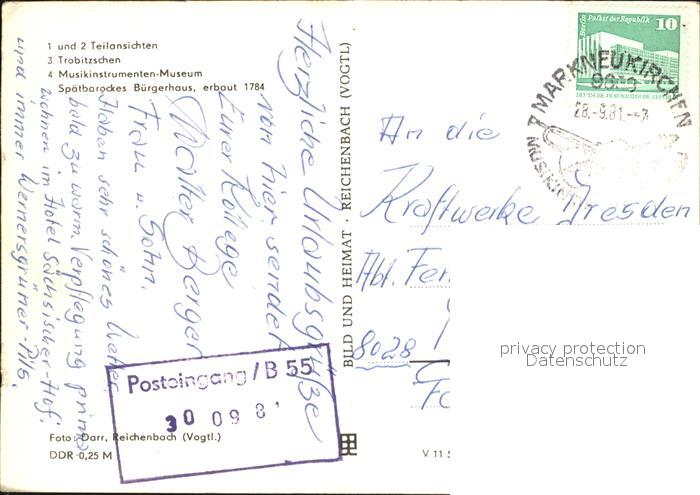 1 und 2 Teilansichten
3 Trobitzschen
4 Musikinstrumenten-Museum
Spätbarockes Bürgerhaus, erbaut 1784
Herzliche Urlaubsgrüße
von hier sendet
Eurer Kollege
Walter Berger
Frau u. Sohn.
Haben sehr schönes Wetter
bald zu warm. Verpflegung prima
wohnen im Hotel Sächsischer-Hof.
und immer Wernersgrüner-Pils.
Posteingang/B 55
30 09 81
Foto: Darr, Reichenbach (Vogtl.)
DDR 0,25 M
BILD UND HEIMAT · REICHENBACH (VOGTL)
V 11
Berlin Palast der Republik
10
DEUTSCHE DEMOKRATISCHE
MARKNEUKIRCHEN
28.-9.81.--7
An die
Kraftwerke Dresden
Abt.
8028
privacy protection
Datenschutz